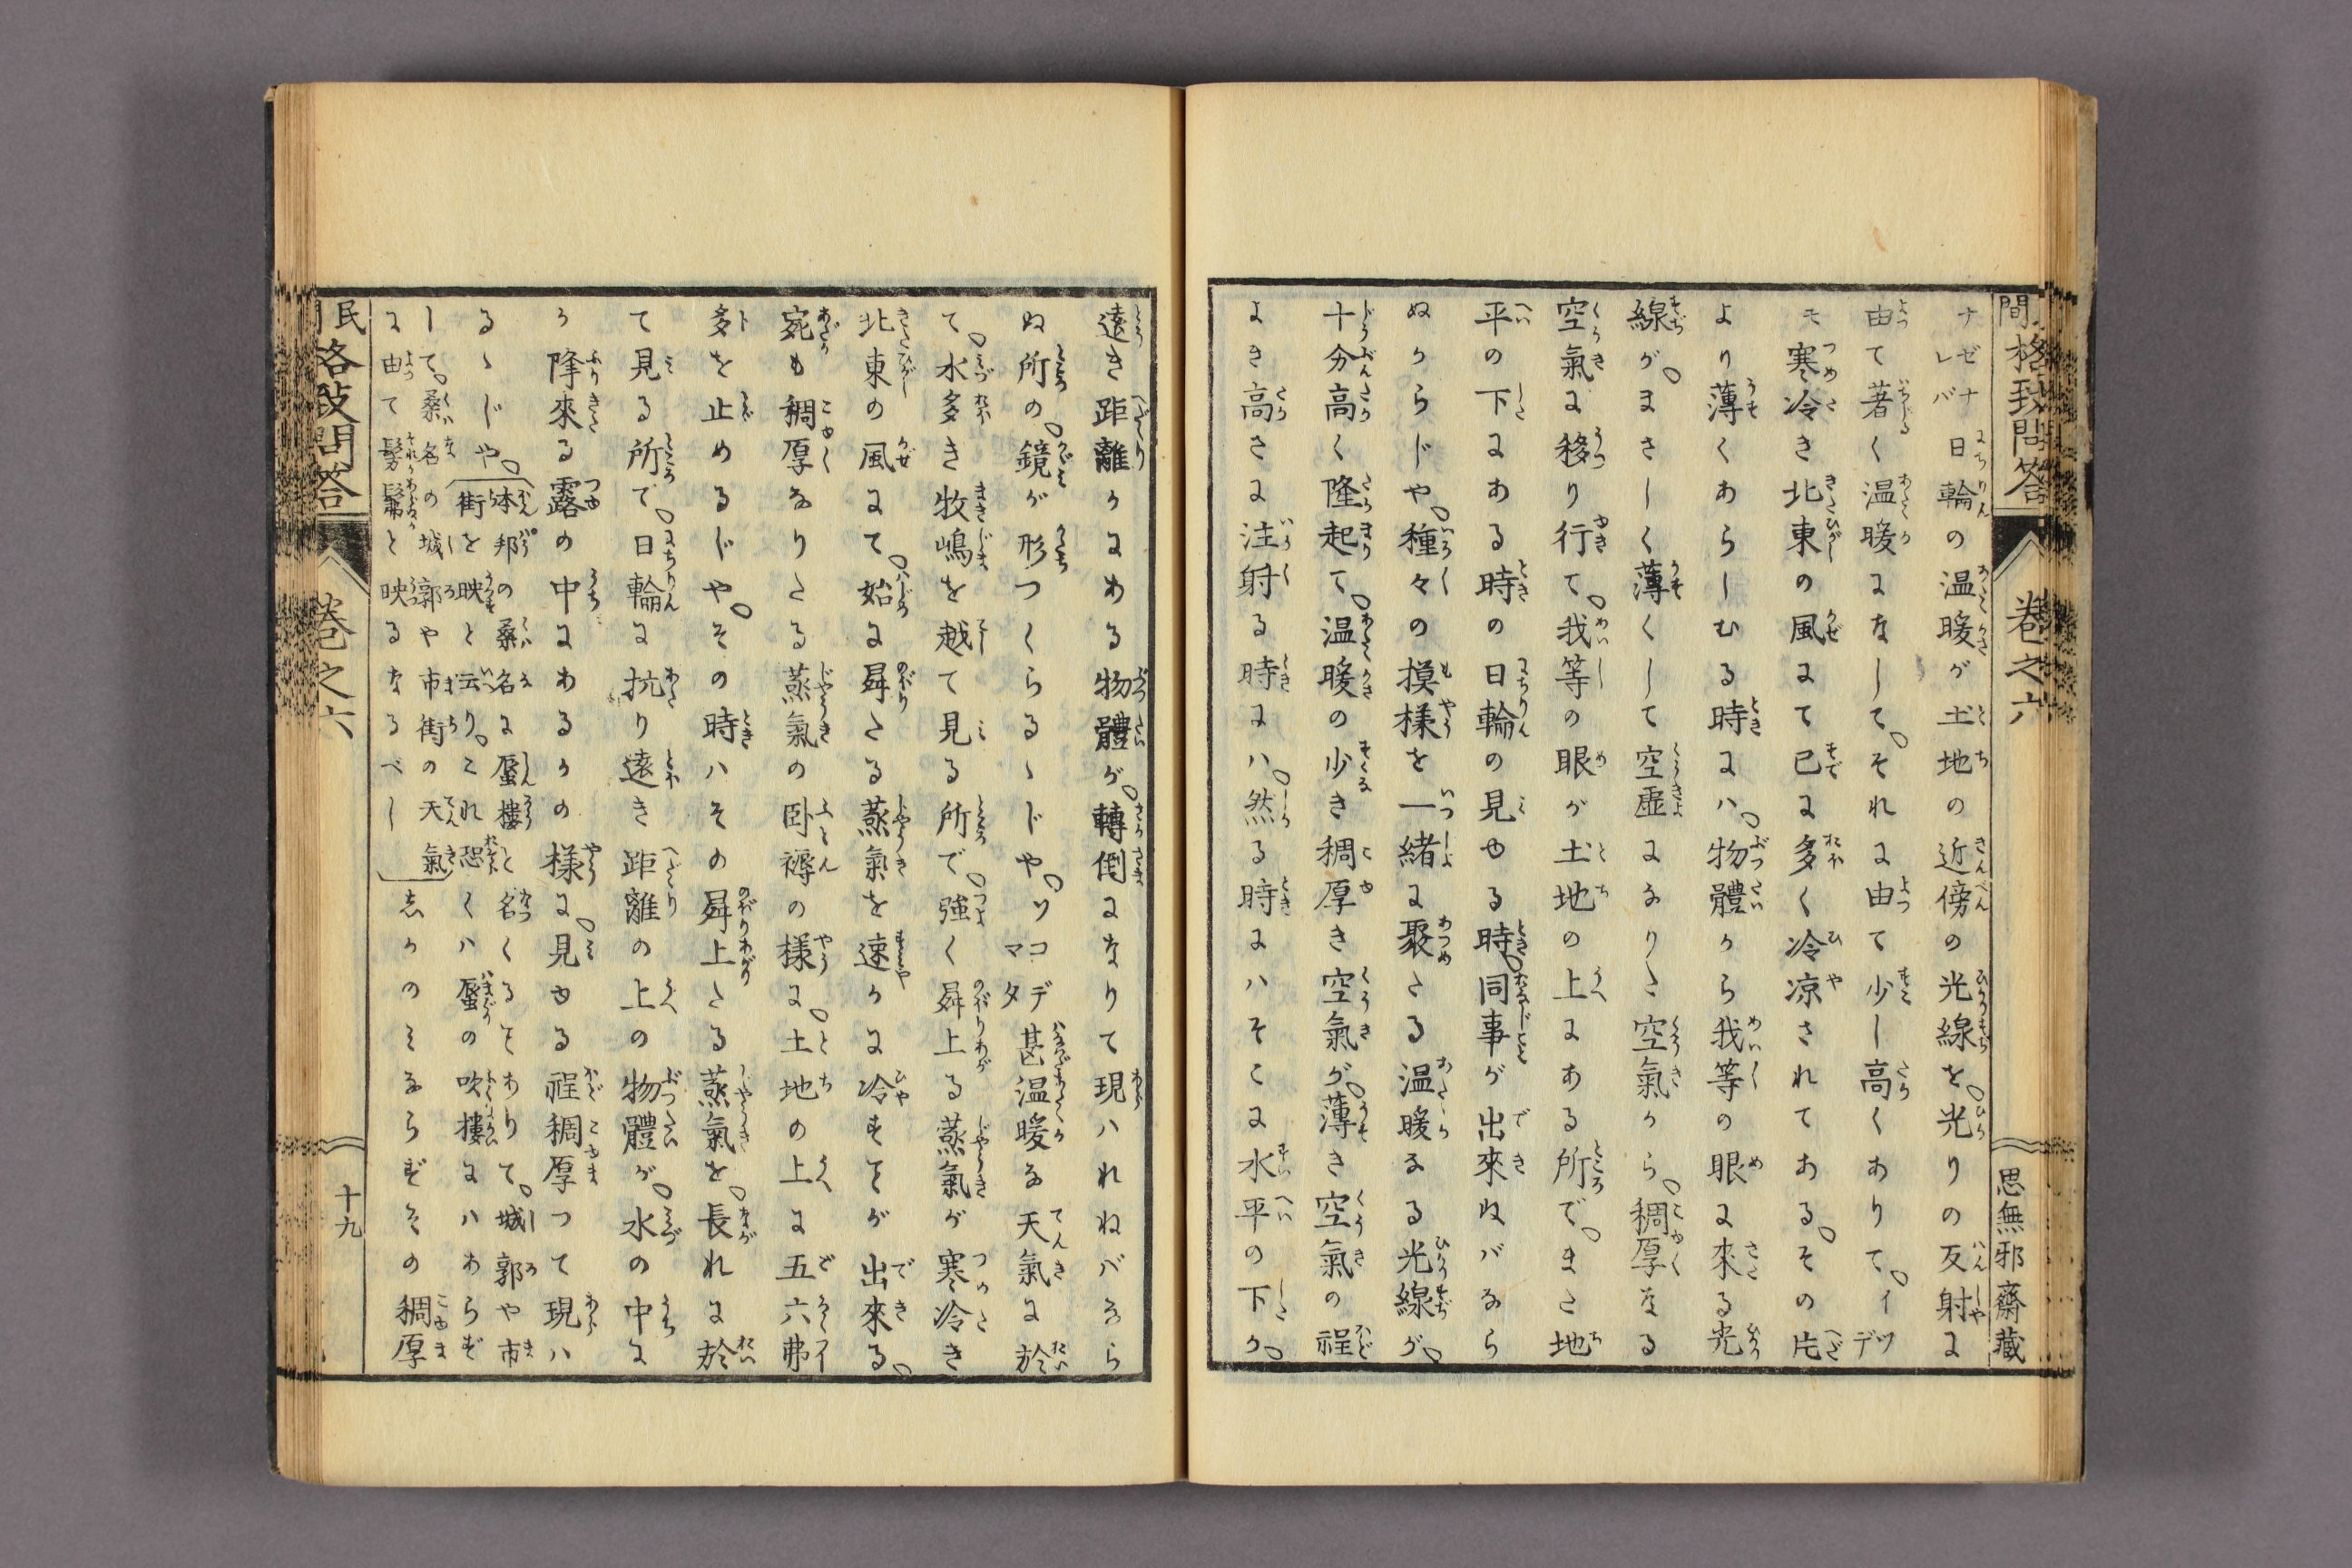 民間格致問答
巻之六
思無邪齋藏
ナゼナレバ日輪の温暖が土地の近傍の光線を、光りの反射に
由て著く温暖になして、それに由て少し高くありて、イツデ
モ寒冷き北東の風にて已に多く冷凉されてある、その片
より薄くあらしむる時にハ、物體から我等の眼に來る光
線が、まさしく薄くして空虚になりた空氣から、稠厚なる
空氣に移り行て、我等の眼が土地の上にある所で、また地
平の下にある時の日輪の見ゆる時、同事が出來ねバなら
ぬからじや、種々の摸樣を一緒に聚たる温暖なる光線が、
十分高く隆起て、温暖の少き稠厚き空氣が、薄き空氣の程
よき高さに注射る時にハ、然る時にハそこに水平の下か、
遠き距離かにある物體が、轉倒になりて現ハれねバなら
ぬ所の、鏡が形つくらるゝじや、ソコデマタ甚温暖な天氣に於
て、水多き牧嶋を越て見る所で、強く昇上る蒸氣が寒冷き
北東の風にて、始に昇たる蒸氣を速かに冷すことが出來る、
宛も稠厚なりたる蒸氣の臥褥の樣に、土地の上に五六弗
多を止めるじや、その時ハその昇上たる蒸氣を、長れに於
て見る所で、日輪に抗り遠き距離の上の物體が、水の中に
か降來る露の中にあるかの樣に、見ゆる程稠厚つて現ハ
るゝじや、本邦の桑名に蜃樓と名くることありて、城郭や市
街を映と云り、これ恐くハ蜃の吹樓にハあらず
して、桑名の城郭や市街の天氣
に由て髣髴と映るなるべし
志かのみならずその稠厚
民間格致問答
巻之六
十九